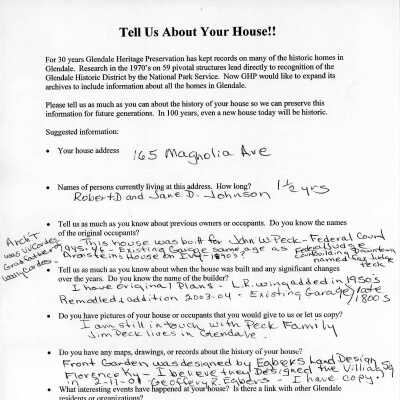 Tell Us About Your House!!
For 30 years Glendale Heritage Preservation has kept records on many of the historic homes in
Glendale. Research in the 1970's on 59 pivotal structures lead directly to recognition of the
Glendale Historic District by the National Park Service. Now GHP would like to expand its
archives to include information about all the homes in Glendale.
Please tell us as much as you can about the history of your house so we can preserve this
information for future generations. In 100 years, even a new house today will be historic.
Suggested information:
• Your house address 165 Magnolia Ave
• Names of persons currently living at this address. How long? 1½ yrs
Robert D and Jane D. Johnson
• Tell us as much as you know about previous owners or occupants. Do you know the names
of the original occupants?
Arch't
was
Grandfather
This house was built for John W Peck - Federal Court
Judge
1945-46 - Existing Garage same age as
House on
Federal
Building Downtown
named for Judge
Peck
• Tell us as much as you know about when the house was built and any significant changes
over the years. Do you know the name of the builder?
I have original Plans - L.R. wing added in 1950's
Remodled & addition 2003-04 - Existing Garage late
1800s
• Do you have pictures of your house or occupants that you would give to us or let us copy?
I am still in touch with Peck Family
Jim Peck lives in Glendale.
• Do you have any maps, drawings, or records about the history of your house?
Front Garden was designed by Egbers Land Design
Florence Ky - I believe they designed the Village Sq
in 2-11-01 Geoffery R. Egbers - I have copy.
• What interesting events have happened at your house? Is there a link with other Glendale
residents or organizations?